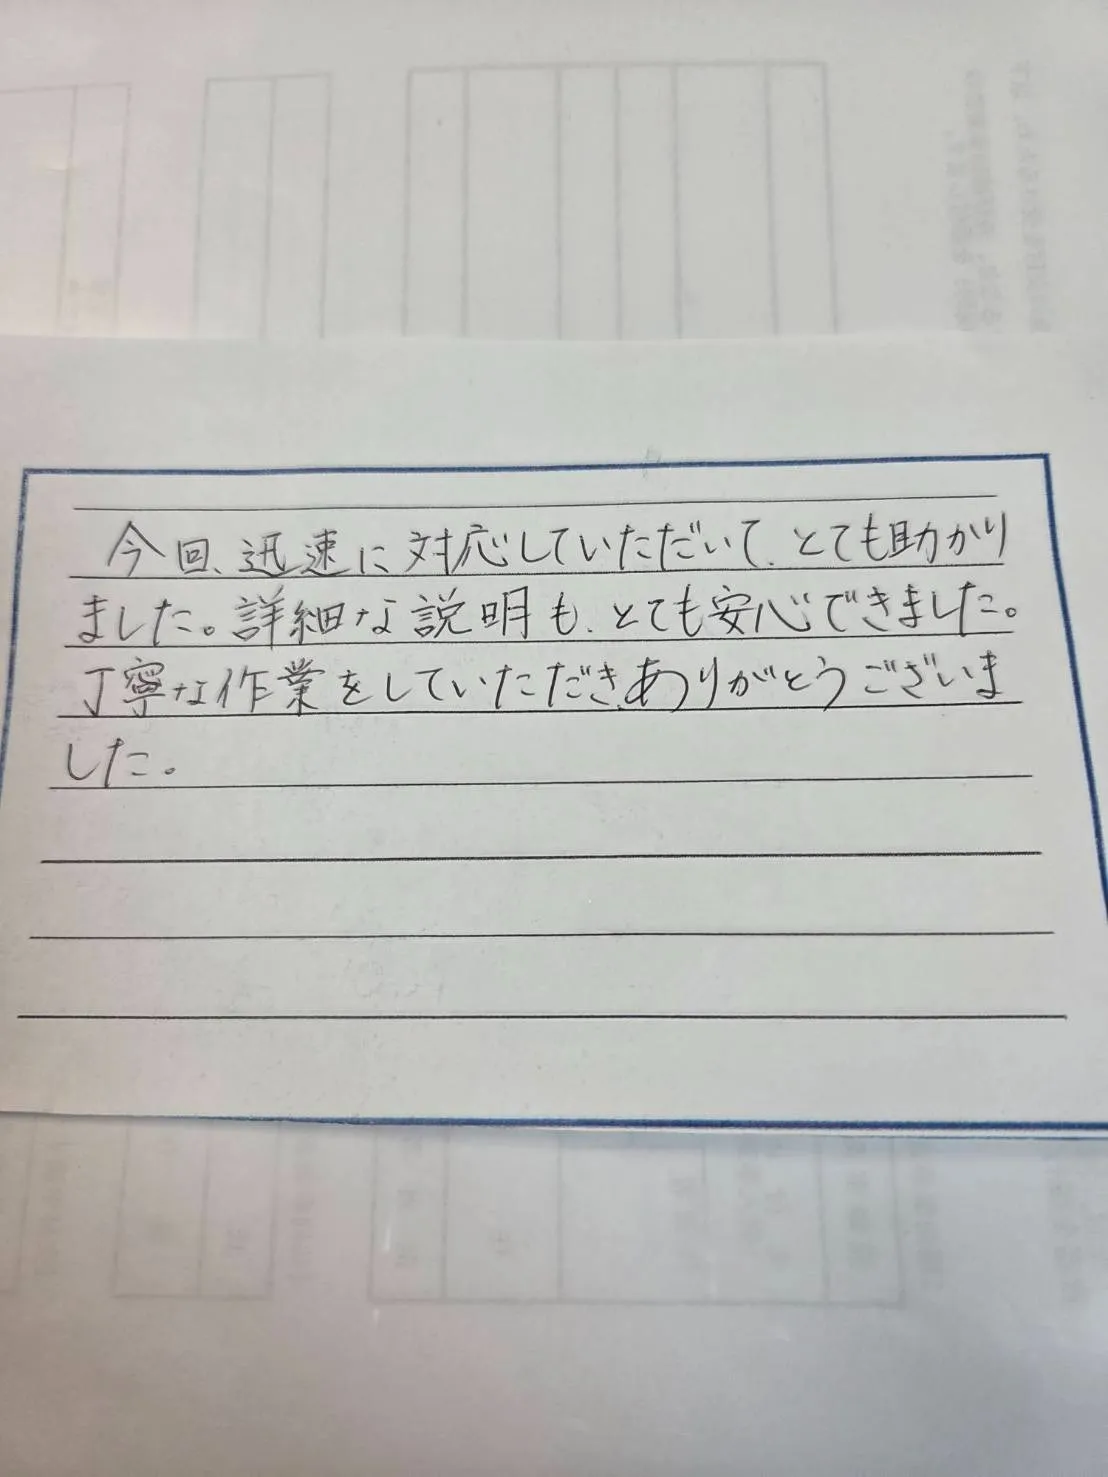 今回、迅速に対応していただいて、とても助かり
ました。詳細な説明も、とても安心できました。
丁寧な作業をしていただき、ありがとうございま
した。